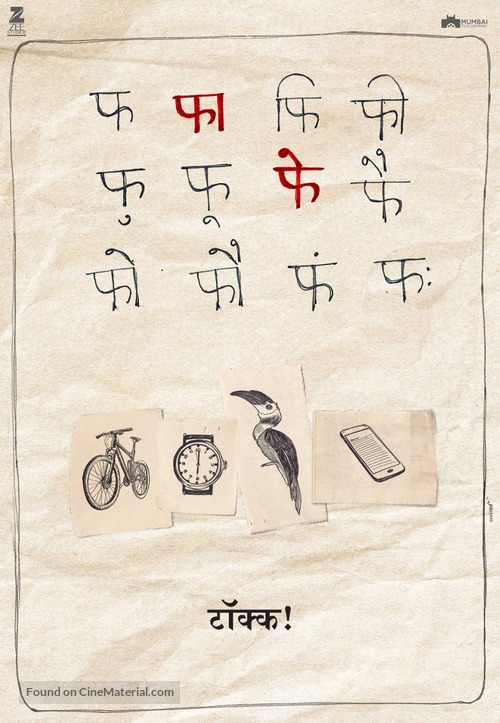 ZEE
STUDIOS
MUMBAI
FILM COMPANY
फ फा फि फी
फु फू फे फै
फो फौ फं फः
टॉक्क!
Found on CineMaterial.com